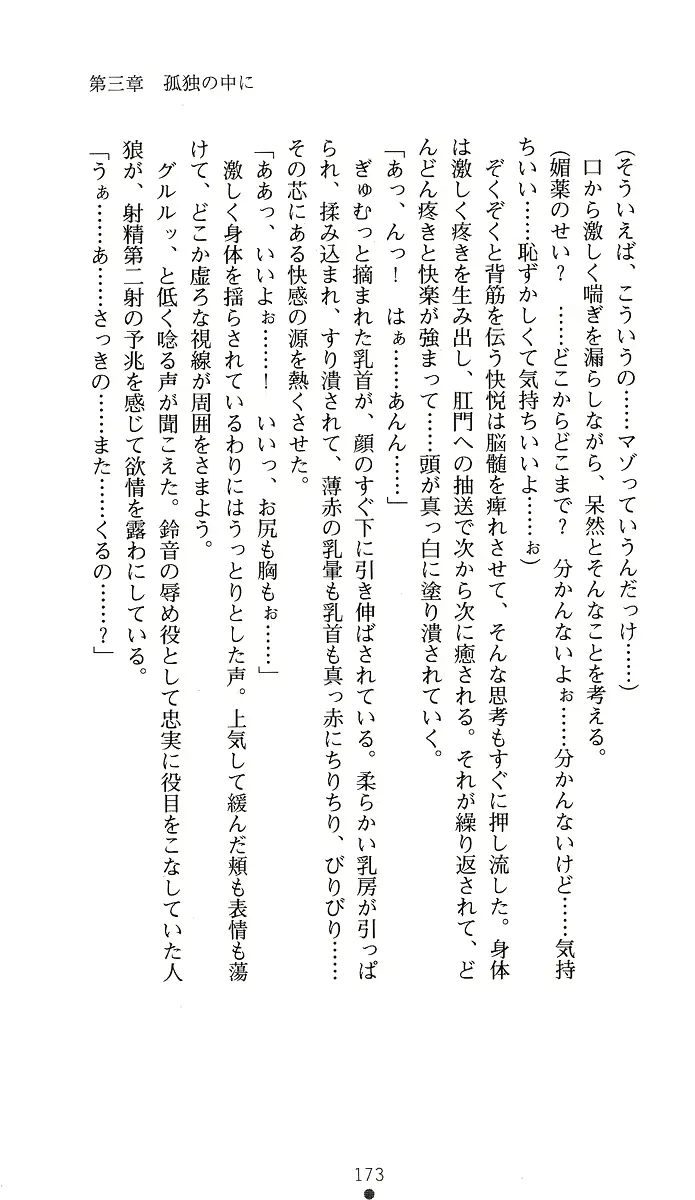 第三章　孤独の中に
（そういえば、こういうの……マゾっていうんだっけ……）
口から激しく喘ぎを漏らしながら、呆然とそんなことを考える。
（媚薬のせい？　……どこからどこまで？　分かんないよぉ……分かんないけど……気持
ちいい……恥ずかしくて気持ちいいよ……ぉ）
ぞくぞくと背筋を伝う快悦は脳髄を痺れさせて、そんな思考もすぐに押し流した。身体
は激しく疼きを生み出し、肛門への抽送で次から次に癒される。それが繰り返されて、ど
んどん疼きと快楽が強まって……頭が真っ白に塗り潰されていく。
「あっ、んっ！　はぁ……あんん……」
ぎゅむっと摘まれた乳首が、顔のすぐ下に引き伸ばされている。柔らかい乳房が引っぱ
られ、揉み込まれ、すり潰されて、薄赤の乳暈も乳首も真っ赤にちりちり、びりびり……
その芯にある快感の源を熱くさせた。
「ああっ、いいよぉ……！　いいっ、お尻も胸もぉ……」
激しく身体を揺らされているわりにはうっとりとした声。上気して緩んだ頬も表情も蕩
けて、どこか虚ろな視線が周囲をさまよう。
グルルッ、と低く唸る声が聞こえた。鈴音の辱め役として忠実に役目をこなしていた人
狼が、射精第二射の予兆を感じて欲情を露わにしている。
「うぁ……あ……さっきの……また……くるの……？」
173